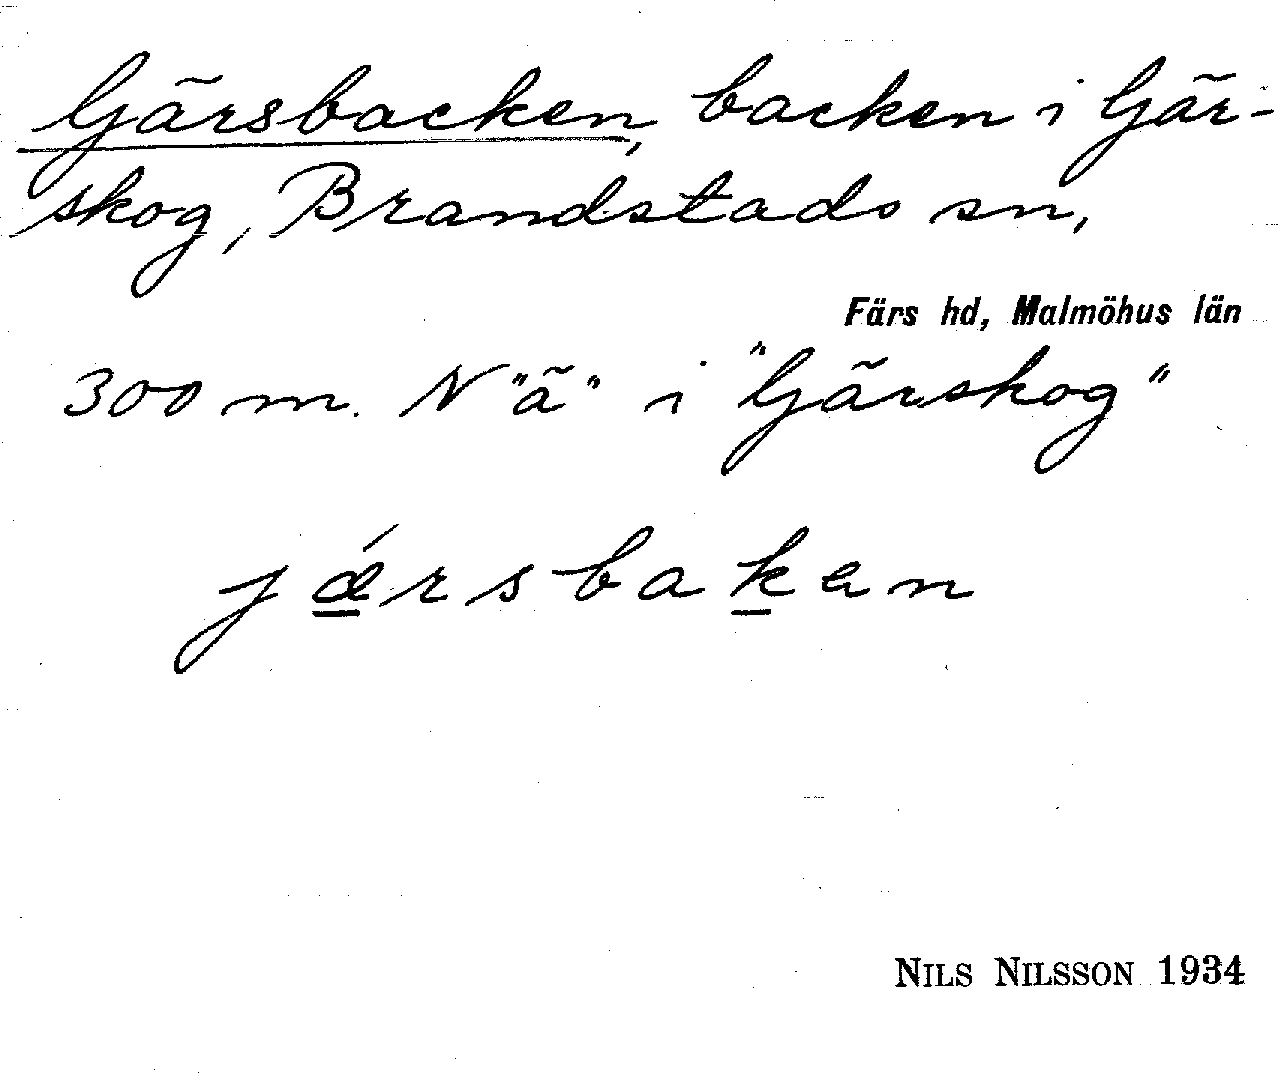 Gärsbacken, backen i Gär-
skog, Brandstads sn,
Färs hd, Malmöhus län
300 m. N "ä" i "Gärskog"
jǽrsbaken
NILS NILSSON 1934